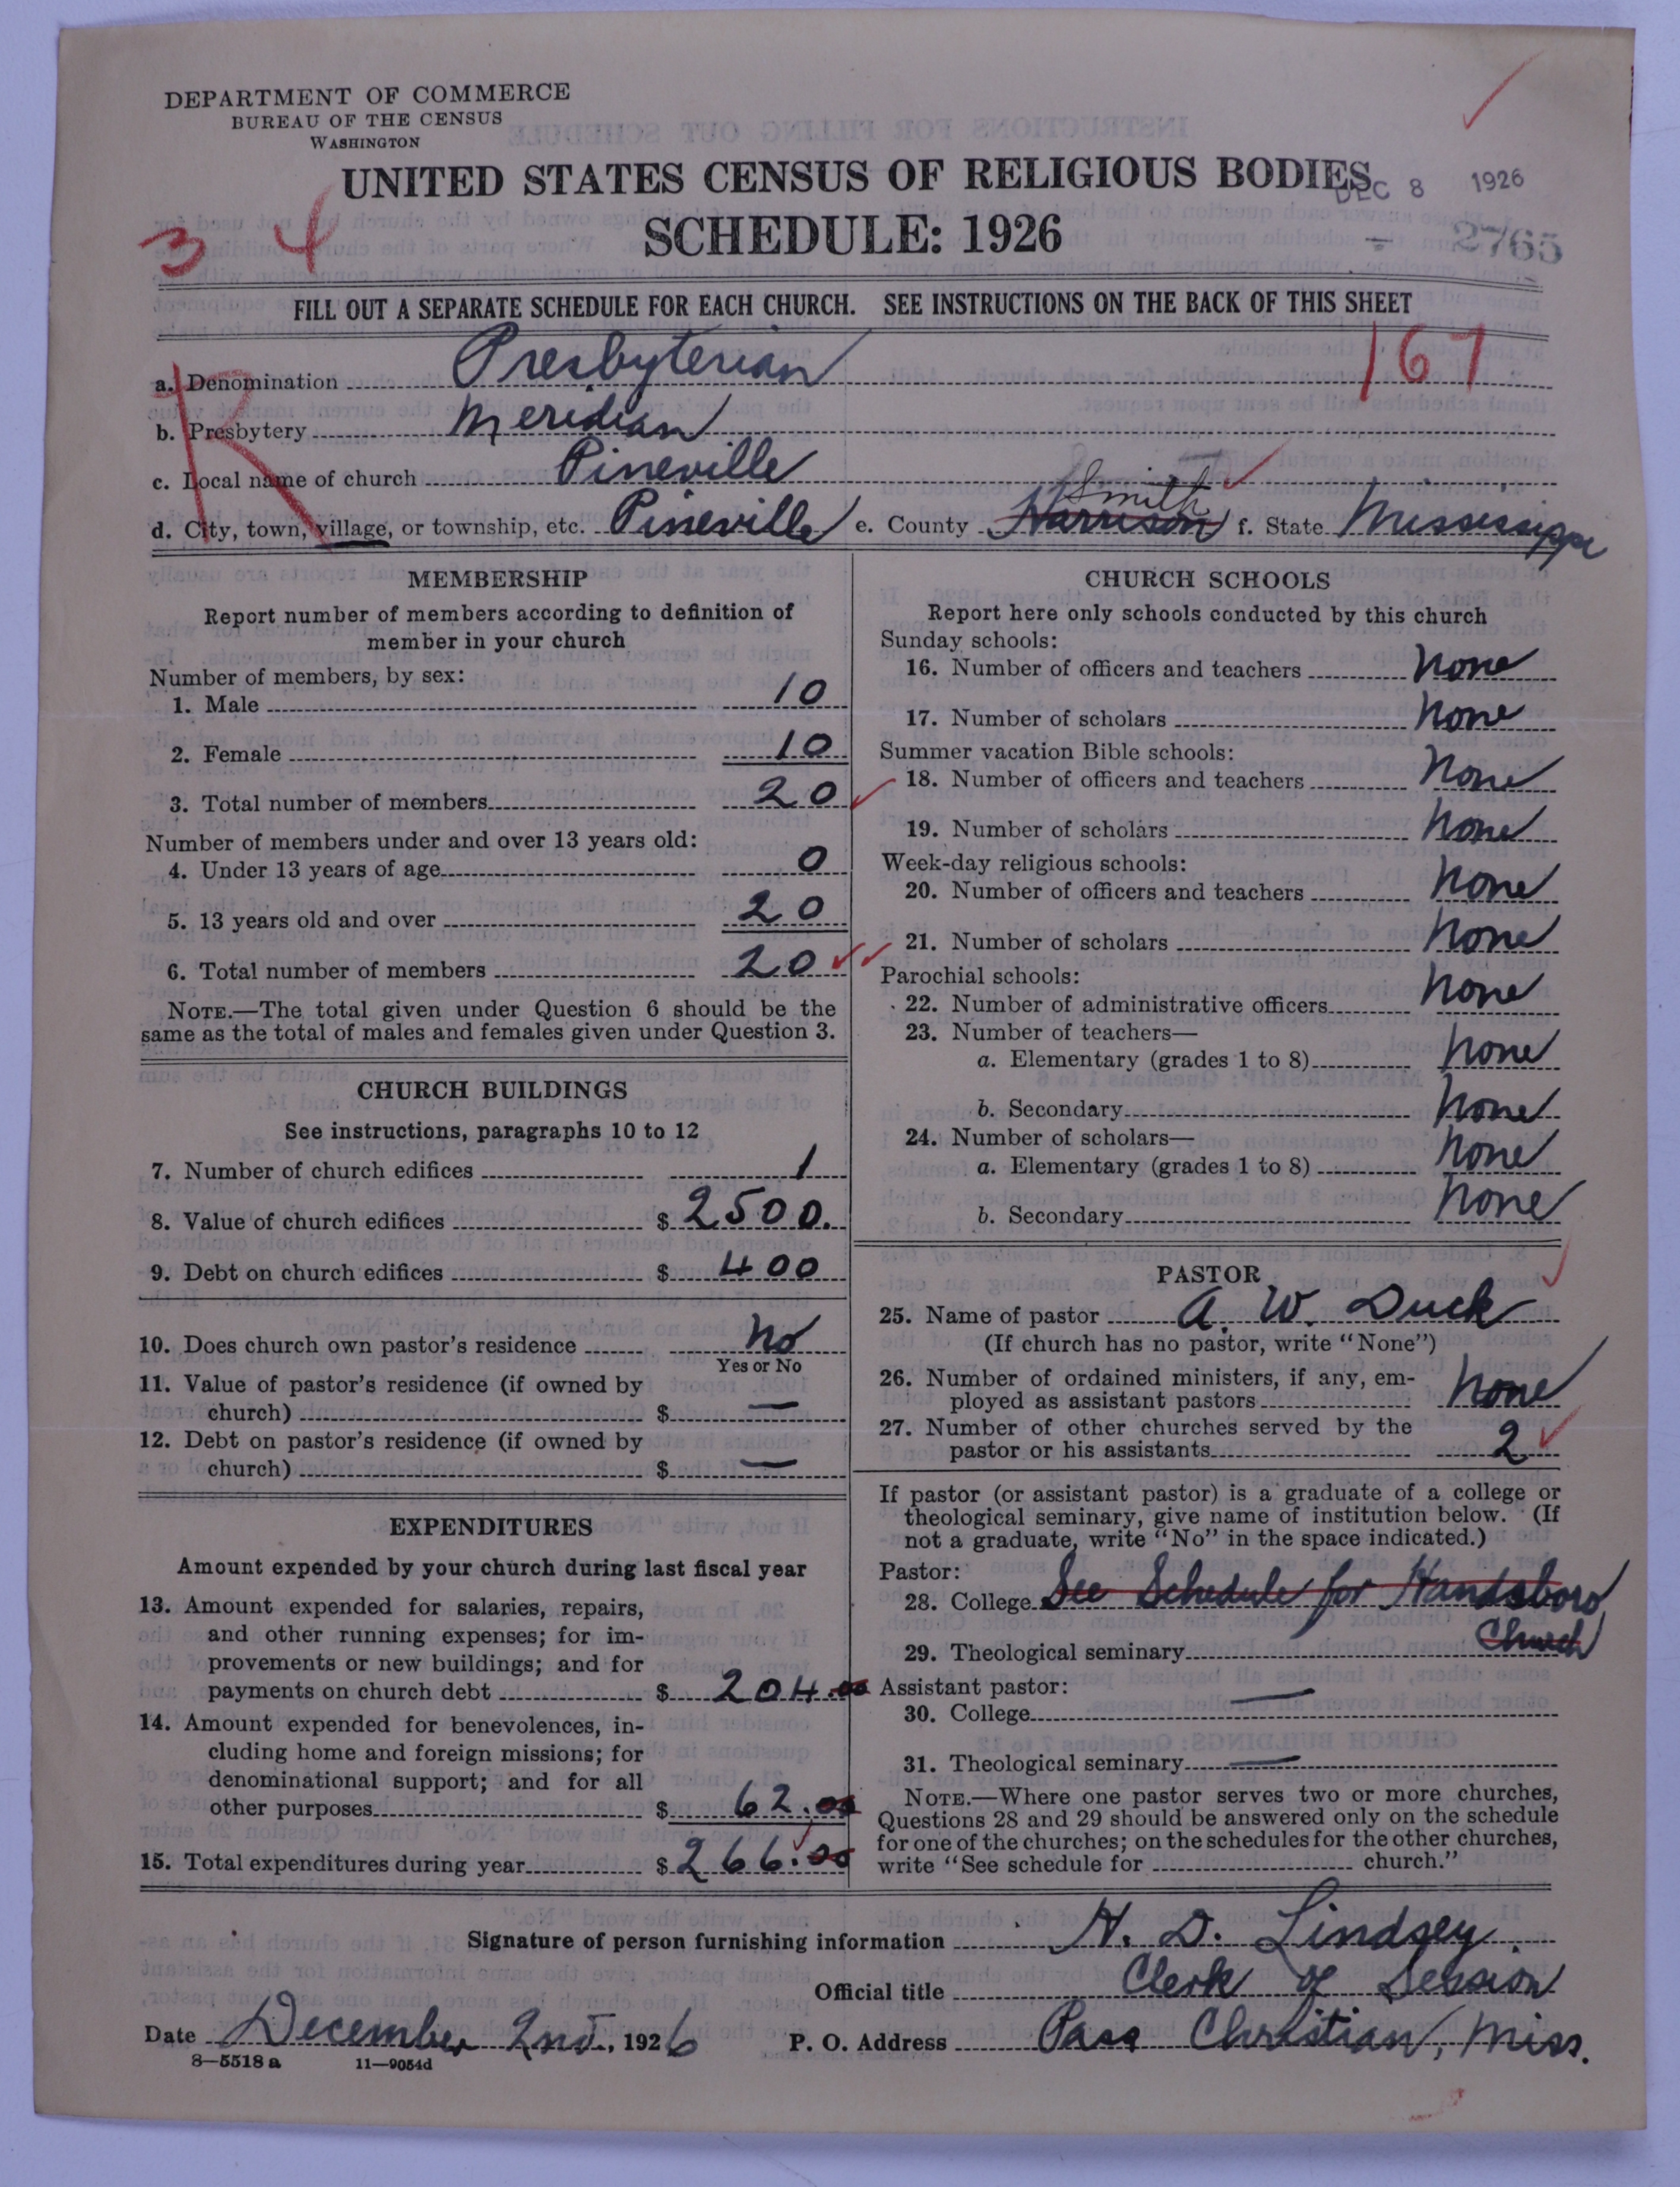 DEPARTMENT OF COMMERCE
BUREAU OF THE CENSUS
WASHINGTON
UNITED STATES CENSUS OF RELIGIOUS BODIES
DEC 8 1926
SCHEDULE: 1926
2765
3 4
FILL OUT A SEPARATE SCHEDULE FOR EACH CHURCH. SEE INSTRUCTIONS ON THE BACK OF THIS SHEET
167
R
a. Denomination Presbyterian
b. Presbytery Meridian
c. Local name of church Pineville
d. City, town, village, or township, etc. Pineville e. County Harrison Smith f. State Mississippi
MEMBERSHIP
Report number of members according to definition of
member in your church
Number of members, by sex:
1. Male 10
2. Female 10
3. Total number of members 20
Number of members under and over 13 years old:
4. Under 13 years of age 0
5. 13 years old and over 20
6. Total number of members 20
NOTE.—The total given under Question 6 should be the
same as the total of males and females given under Question 3.
CHURCH BUILDINGS
See instructions, paragraphs 10 to 12
7. Number of church edifices 1
8. Value of church edifices $ 2500.
9. Debt on church edifices $ 400
10. Does church own pastor's residence No
Yes or No
11. Value of pastor's residence (if owned by
church) $ —
12. Debt on pastor's residence (if owned by
church) $ —
EXPENDITURES
Amount expended by your church during last fiscal year
13. Amount expended for salaries, repairs,
and other running expenses; for im-
provements or new buildings; and for
payments on church debt $ 204.00
14. Amount expended for benevolences, in-
cluding home and foreign missions; for
denominational support; and for all
other purposes $ 62.00
15. Total expenditures during year $ 266.00
CHURCH SCHOOLS
Report here only schools conducted by this church
Sunday schools:
16. Number of officers and teachers None
17. Number of scholars None
Summer vacation Bible schools:
18. Number of officers and teachers None
19. Number of scholars None
Week-day religious schools:
20. Number of officers and teachers None
21. Number of scholars None
Parochial schools:
22. Number of administrative officers None
23. Number of teachers—
a. Elementary (grades 1 to 8) None
b. Secondary None
24. Number of scholars—
a. Elementary (grades 1 to 8) None
b. Secondary None
PASTOR
25. Name of pastor A. W. Duck
(If church has no pastor, write "None")
26. Number of ordained ministers, if any, em-
ployed as assistant pastors None
27. Number of other churches served by the
pastor or his assistants 2
If pastor (or assistant pastor) is a graduate of a college or
theological seminary, give name of institution below. (If
not a graduate, write "No" in the space indicated.)
Pastor:
28. College See Schedule for Handsboro
Church
29. Theological seminary
Assistant pastor:
30. College —
31. Theological seminary —
NOTE.—Where one pastor serves two or more churches,
Questions 28 and 29 should be answered only on the schedule
for one of the churches; on the schedules for the other churches,
write "See schedule for church."
Signature of person furnishing information H. D. Lindsey.
Official title Clerk of Session
Date December 2nd, 1926 P. O. Address Pass Christian, Miss.
8—5518a 11—9054d